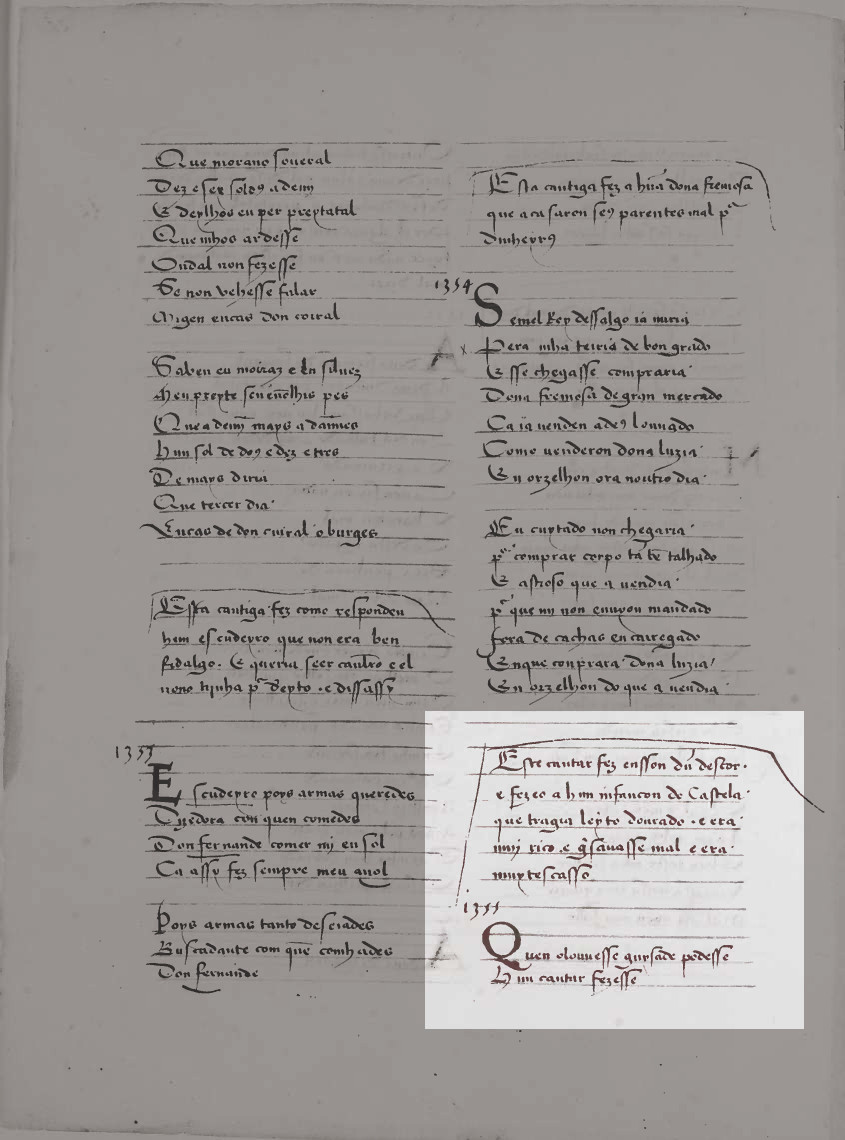 Que morano soueral
Dez e sex soldꝯ a demj
E deylhos eu per preytatal
Que mhos ar desse
Ondal non fezesse
Se non vehesse falar
Migen eucas don coiral
Saben eu moiraz e
Meu preyte
Que a demj mays a
hun sol de doꝯ e dez e tres
De mays diria
Que tercer dia
Eucas de don cuiral o burges
Esta cantiga fez como responden
hum escudeyro que non era ben
fidalgo. E queria seer caualro e el
nono tijnha p̄ dereyto . e dissassy
1353
Escudeyro poys armas queredes
Dizedora con quen comedes
Don fernando comer mj eu sol
Ca assy fez sempre meu auol
Poys armas tanto deseiades
Buscadante com quē comhades
Don fernande
Esta cantiga fez a hūa dona fremosa
que a casaron seꝯ parentes mal p̄
dinheyrꝯ
1354
Se mel Rey dessalgo ia miria
Pera mha teiria de bon grado
E sse chegasse compraria
Dona fremosa de gran mercado
Ca ia uenden a deꝯ louuado
Como uenderon dona luzia
En orzelhon ora noutro dia
En cuytado non chegaria
p̄ comprar corpo tā bē talhado
E astroso que a uendia
p̄ que mj non enuyou mandado
fora de cachas encarregado
En que conprara dona luzia
En orzelhon do que a uendia
Este cantar fez en sson dū descor.
e fezeo a hun infançon de Castela
que tragia leyto dourado . e era
muj rico . e guisauasse mal e era
muyt escasso
1355
Quen oiouuesse guysade podesse
Hun cantar fezesse